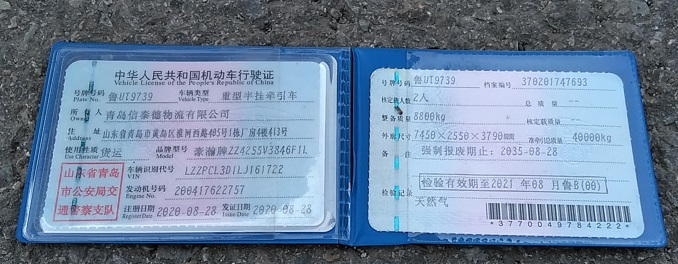 中华人民共和国机动车行驶证
Vehicle License of the People's Republic of China
号牌号码 Plate No. 鲁UT9739 车辆类型 Vehicle Type 重型半挂牵引车
所有人 Owner 青岛信泰德物流有限公司
住址 Address 山东省青岛市黄岛区淮河西路405号1栋厂房4楼413号
使用性质 Use Character 货运 品牌型号 Model 豪瀚牌ZZ4255V3846F1L
山东省青岛市公安局交通警察支队
车辆识别代号 VIN LZZPCL3D1LJ161722
发动机号码 Engine No. 200417622757
注册日期 Register Date 2020-08-28 发证日期 Issue Date 2020-08-28
号牌号码 鲁UT9739 档案编号 370201747693
核定载人数 2人 总质量 --
整备质量 8800kg 核定载质量 --
外廓尺寸 7450×2550×3790mm 准牵引总质量 40000kg
备注 强制报废期止：2035-08-28
检验记录 检验有效期至2021年08月鲁B(00)
天然气
*3770049784222*